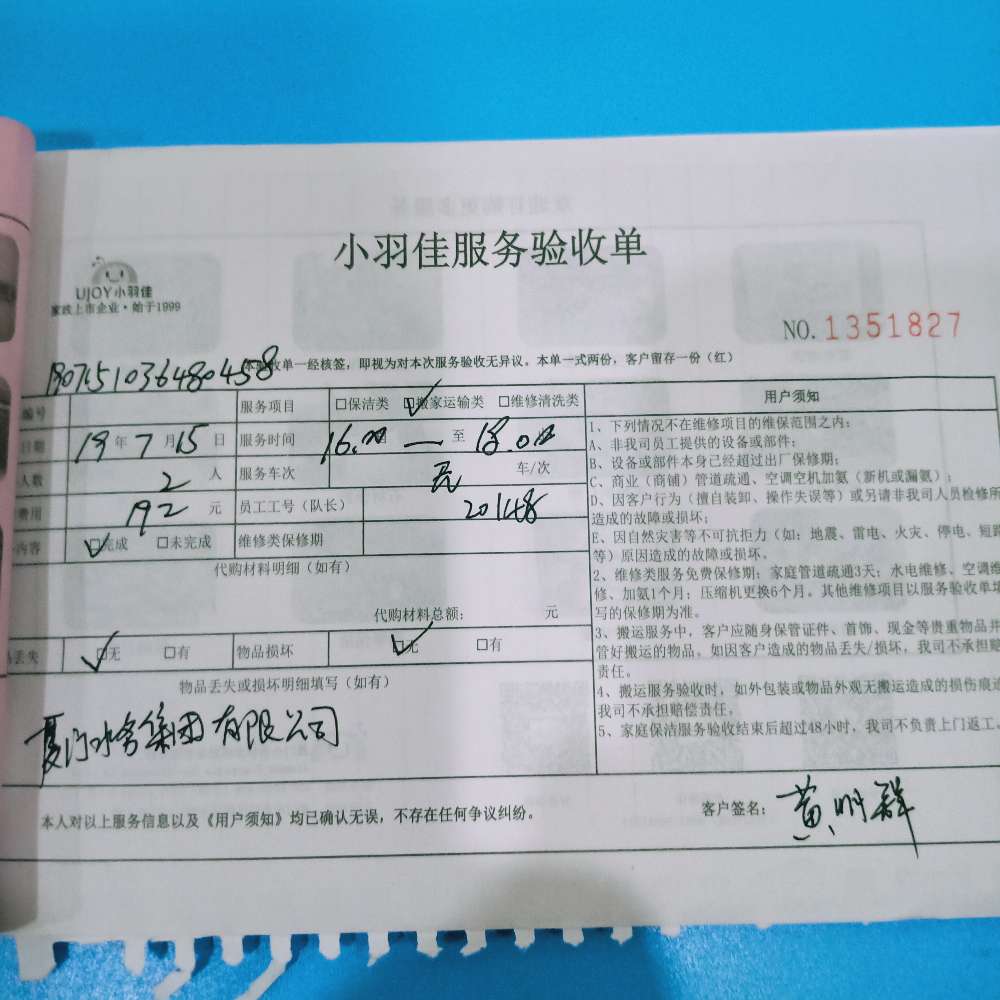 小羽佳服务验收单
UJOY小羽佳
家政上市企业·始于1999
NO.1351827
本验收单一经核签，即视为对本次服务验收无异议。本单一式两份，客户留存一份（红）
编号 服务项目 □保洁类 □搬家运输类 □维修清洗类
日期 19年7月15日 服务时间 16.00 至 18.00
人数 2人 服务车次 车/次
费用 192元 员工工号（队长） 20148
内容 □完成 □未完成 维修类保修期
代购材料明细（如有）
代购材料总额： 元
丢失 □无 □有 物品损坏 □无 □有
物品丢失或损坏明细填写（如有）
厦门水务集团有限公司
用户须知
1、下列情况不在维修项目的维保范围之内：
A、非我司员工提供的设备或部件；
B、设备或部件本身已经超过出厂保修期；
C、商业（商铺）管道疏通、空调空机加氨（新机或漏氨）；
D、因客户行为（擅自装卸、操作失误等）或另请非我司人员检修所
造成的故障或损坏；
E、因自然灾害等不可抗拒力（如：地震、雷电、火灾、停电、短路
等）原因造成的故障或损坏。
2、维修类服务免费保修期：家庭管道疏通3天；水电维修、空调维
修、加氨1个月；压缩机更换6个月。其他维修项目以服务验收单填
写的保修期为准。
3、搬运服务中，客户应随身保管证件、首饰、现金等贵重物品并
管好搬运的物品，如因客户造成的物品丢失/损坏，我司不承担赔
责任。
4、搬运服务验收时，如外包装或物品外观无搬运造成的损伤痕迹
我司不承担赔偿责任。
5、家庭保洁服务验收结束后超过48小时，我司不负责上门返工。
本人对以上服务信息以及《用户须知》均已确认无误，不存在任何争议纠纷。
客户签名：黄明群